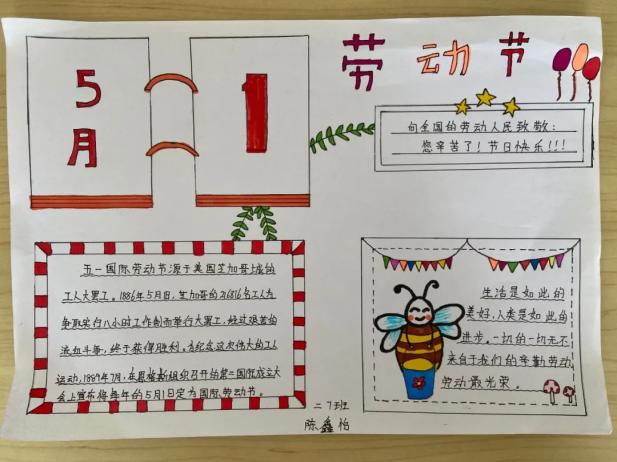 5月
1
劳动节
向全国的劳动人民致敬：
您辛苦了！节日快乐!!!
五一国际劳动节源于美国芝加哥城的
工人大罢工。1886年5月1日，芝加哥的216816名工人为
争取实行八小时工作制而举行大罢工，经过艰苦的
流血斗争，终于获得胜利。为纪念这次伟大的工人
运动，1889年7月，在恩格斯组织召开的第二国际成立大
会上宣布将每年的5月1日定为国际劳动节。
生活是如此的
美好，人类是如此的
进步。一切的一切无不
来自于我们的辛勤劳动
劳动最光荣。
二7班
陈鑫怡